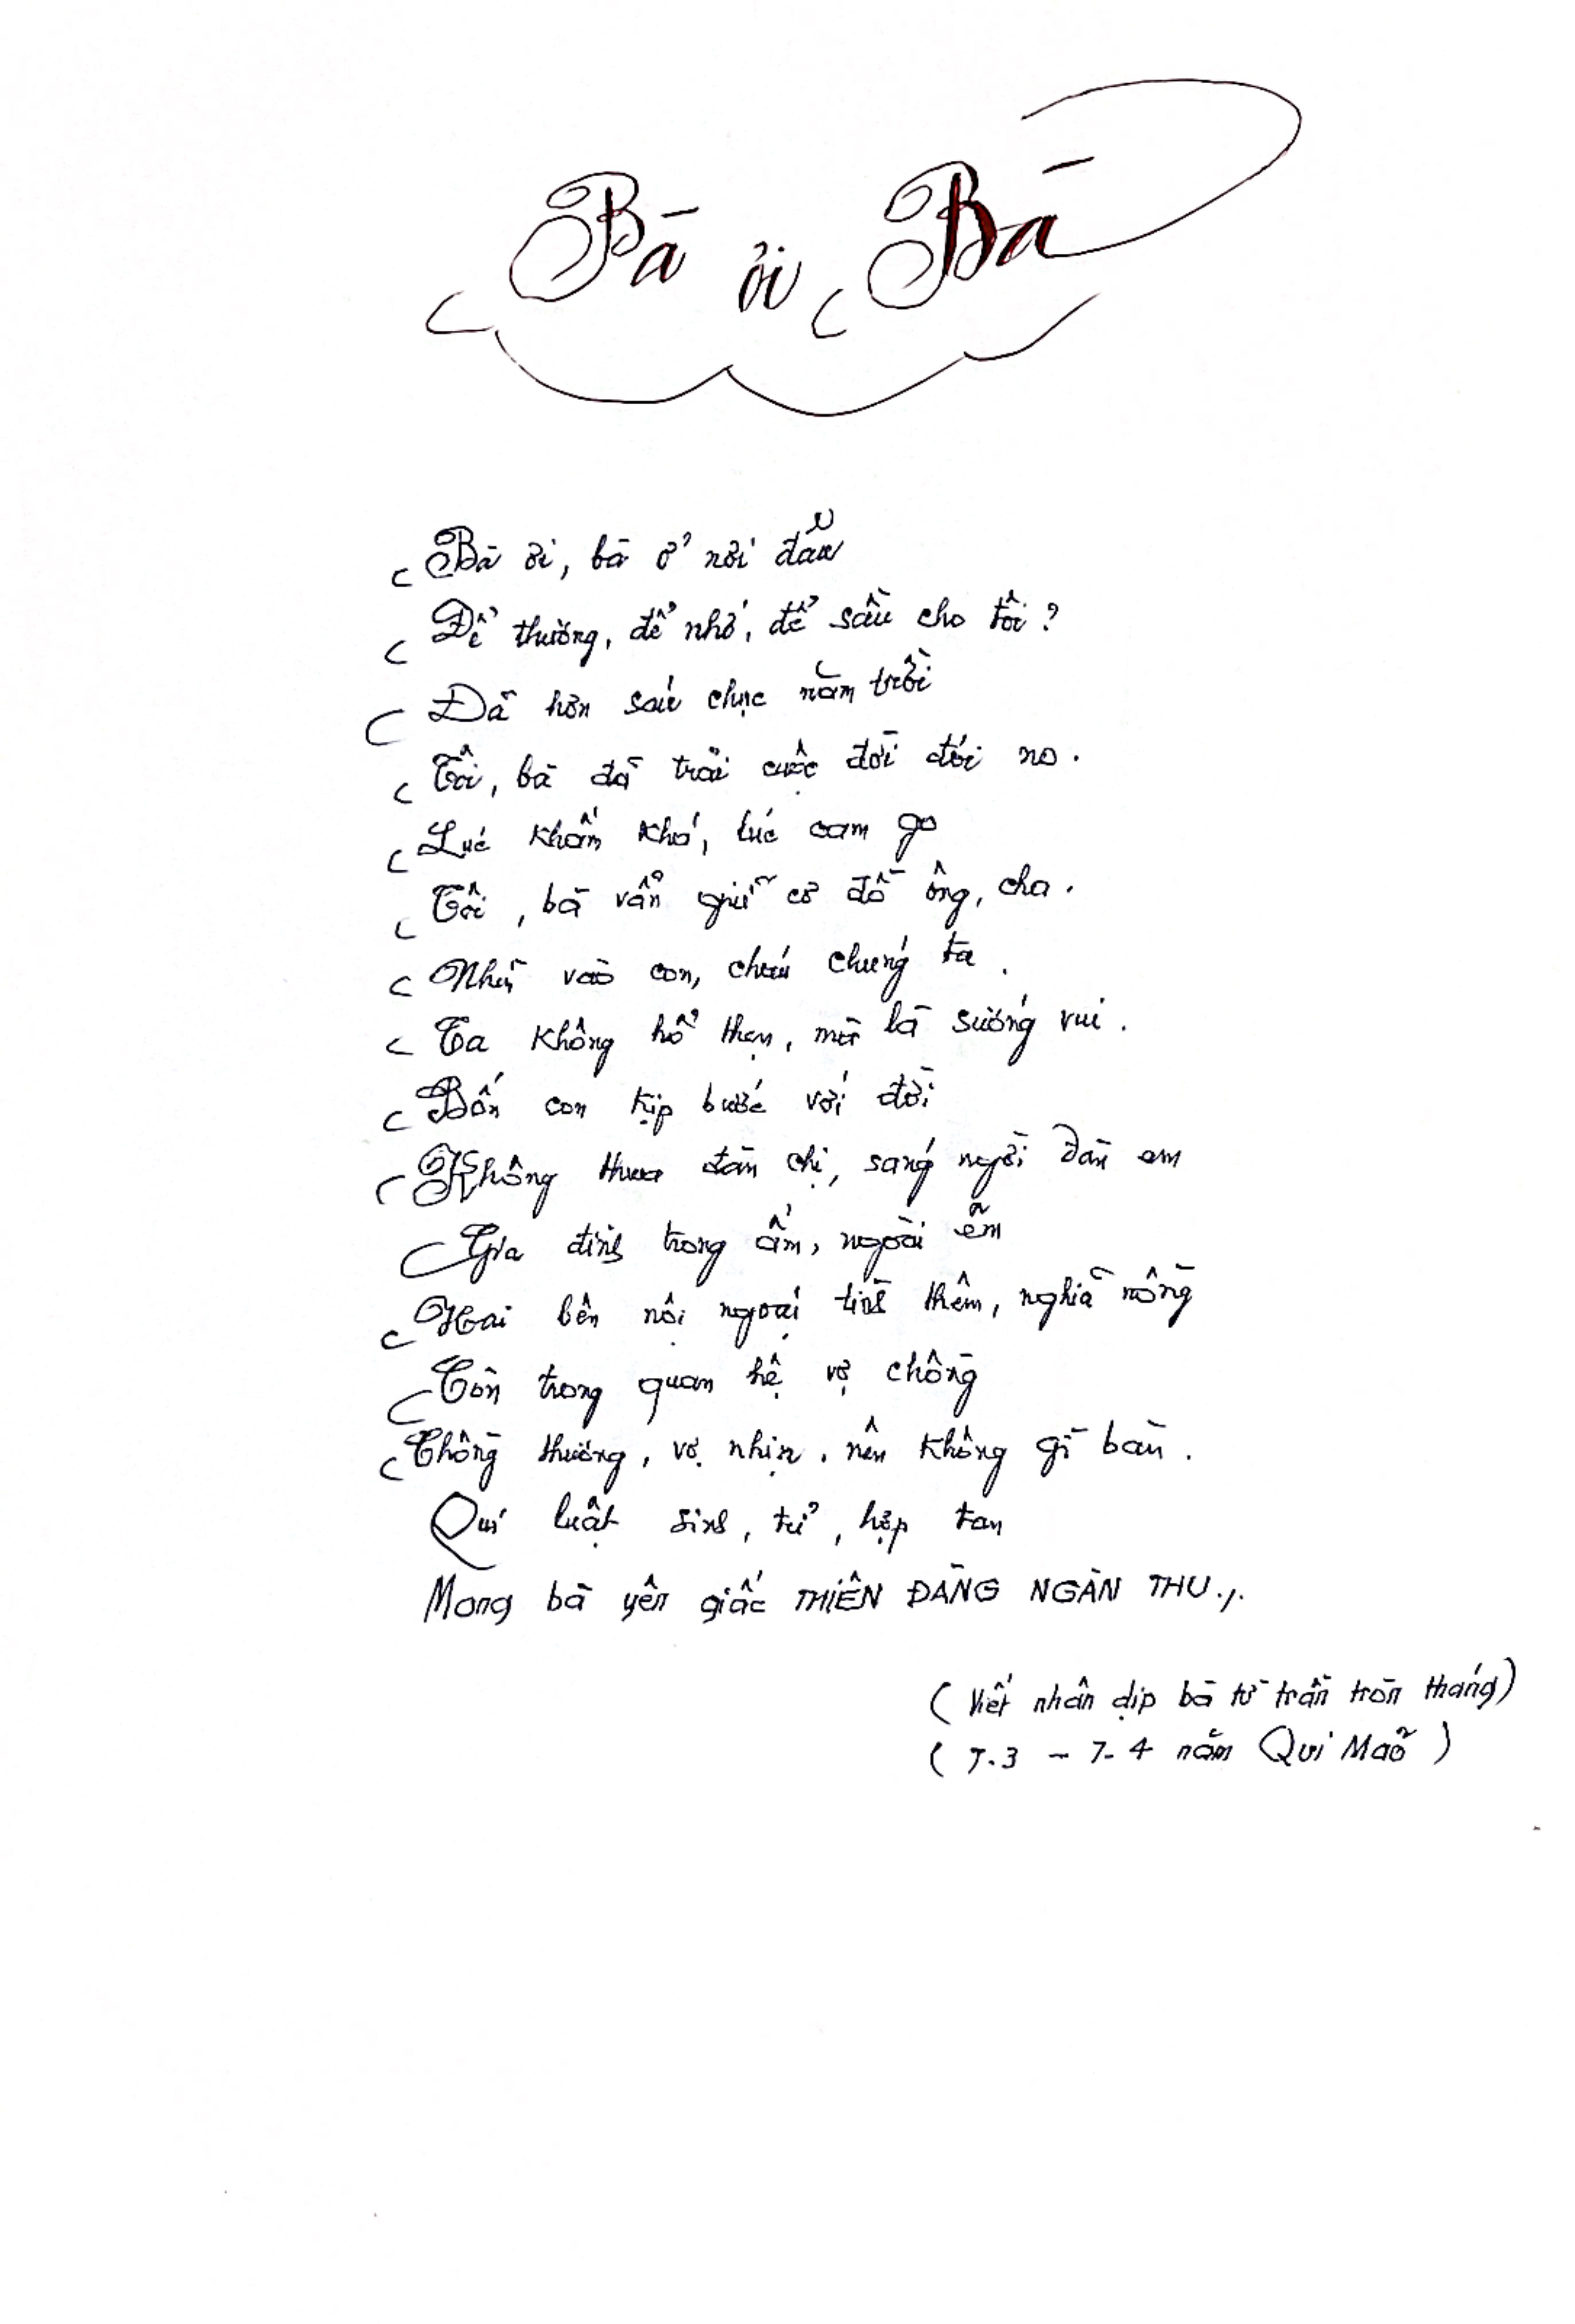 Bà ơi, Bà
Bà ơi, bà ở nơi đâu
Để thương, để nhớ, để sầu cho tôi?
Đã hơn sáu chục năm trời
Tôi, bà đã trải cuộc đời đói no.
Lúc khốn khó, lúc cam go
Tôi, bà vẫn giữ cơ đồ ông, cha.
Nhìn vào con, cháu chúng ta.
Ta không hổ thẹn, mà là sướng vui.
Bốn con kịp bước với đời
Không thua đàn chị, sáng ngời đàn em
Gia đình trong ấm, ngoài êm
Hai bên nội ngoại tình thêm, nghĩa nồng
Còn trong quan hệ vợ chồng
Chồng thương, vợ nhịn, nên không gì bàn.
Qui luật sinh, tử, hợp tan
Mong bà yên giấc THIÊN ĐÀNG NGÀN THU./.
(Viết nhân dịp bà từ trần tròn tháng)
(7.3 - 7-4 năm Quí Mão)